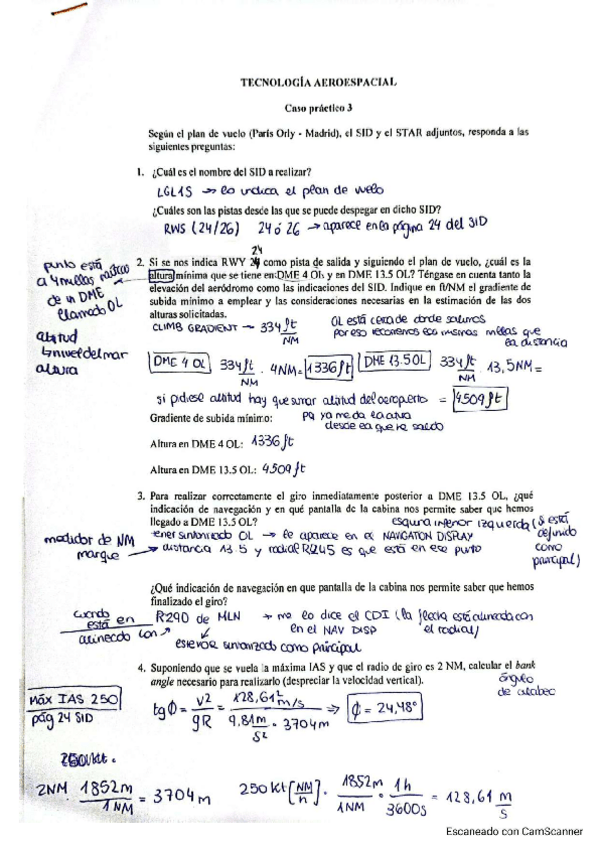 TECNOLOGÍA AEROESPACIAL
Caso práctico 3
Según el plan de vuelo (París Orly - Madrid), el SID y el STAR adjuntos, responda a las
siguientes preguntas:
1. ¿Cuál es el nombre del SID a realizar?
LGL1S → lo indica el plan de vuelo
¿Cuáles son las pistas desde las que se puede despegar en dicho SID?
RWS (24/26) 24 ó 26 → aparece en la página 24 del SID
24
2. Si se nos indica RWY 24 como pista de salida y siguiendo el plan de vuelo, ¿cuál es la
altura mínima que se tiene en: DME 4 OL y en DME 13.5 OL? Téngase en cuenta tanto la
elevación del aeródromo como las indicaciones del SID. Indique en ft/NM el gradiente de
subida mínimo a emplear y las consideraciones necesarias en la estimación de las dos
alturas solicitadas.
punto está
a 4 millas
de un DME
llamado OL
altitud
↳ nivel del mar
altura
CLIMB GRADIENT → 334 ft/NM
OL está cerca de donde salimos
por eso recorremos esa mismas millas que
la distancia
DME 4 OL 334 ft/NM · 4NM = 1336 ft DME 13.5 OL 334 ft/NM · 13,5NM =
si pidiese altitud hay que sumar altitud del aeropuerto = 4509 ft
Gradiente de subida mínimo: pq ya me da la altura
desde la que he salido
Altura en DME 4 OL: 1336 ft
Altura en DME 13.5 OL: 4509 ft
3. Para realizar correctamente el giro inmediatamente posterior a DME 13.5 OL, ¿qué
indicación de navegación y en qué pantalla de la cabina nos permite saber que hemos
llegado a DME 13.5 OL?
esquina inferior izquierda (si está
definido
como
principal)
tener sintonizado OL → le aparece en el NAVIGATON DISPLAY
medidor de NM
marque → distancia 13.5 y radial R245 es que está en ese punto
¿Qué indicación de navegación en que pantalla de la cabina nos permite saber que hemos
finalizado el giro?
cuando
está en R290 de MLN → me lo dice el CDI (la flecha está alineada con
alineado con en el NAV DISP el radial)
sintonizado como principal
4. Suponiendo que se vuela la máxima IAS y que el radio de giro es 2 NM, calcular el bank
angle necesario para realizarlo (despreciar la velocidad vertical).
ángulo
de alabeo
Máx IAS 250
pág 24 SID
tg Φ = v²/gR = 128,61² m/s / 9,81 m/s² · 3704m ⇒ Φ = 24,48°
250 kt.
2NM · 1852m/1NM = 3704 m
250 kt [NM/h] · 1852m/1NM · 1h/3600s = 128,61 m/s
Escaneado con CamScanner